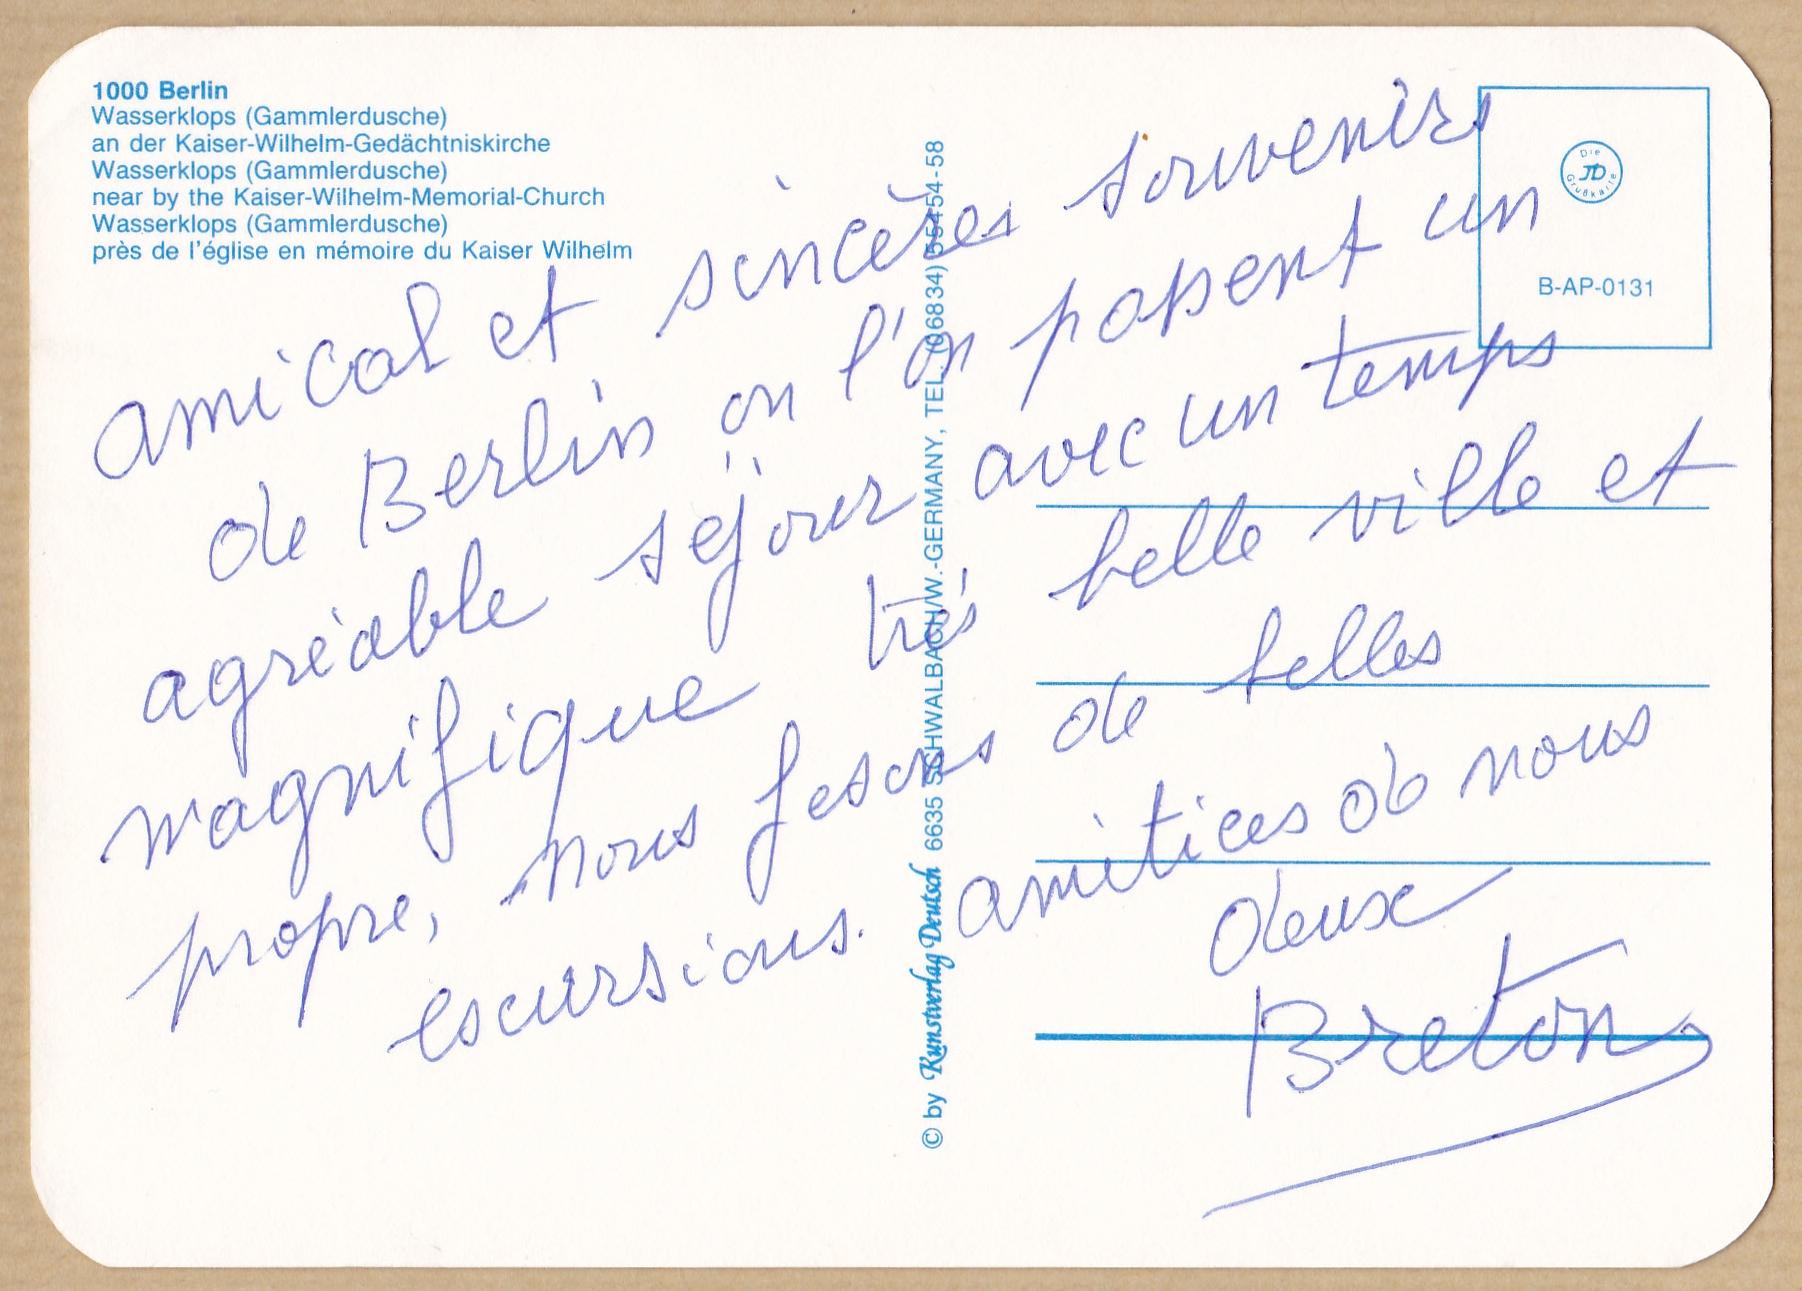 1000 Berlin
Wasserklops (Gammlerdusche)
an der Kaiser-Wilhelm-Gedächtniskirche
Wasserklops (Gammlerdusche)
near by the Kaiser-Wilhelm-Memorial-Church
Wasserklops (Gammlerdusche)
près de l'église en mémoire du Kaiser Wilhelm
Die
JD
Grußkarte
B-AP-0131
© by Kunstverlag Deutsch 6635 SCHWALBACH/W.-GERMANY, TEL. (06834) 55454-58
amical et sincères souvenirs
de Berlin ou l'on passent un
agréable séjour avec un temps
magnifique très belle ville et
propre, nous fesons de belles
escursions. amitiees de nous
deux
Breton